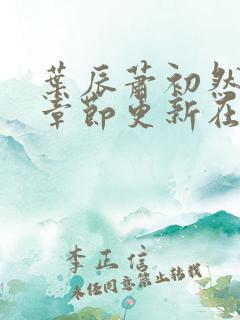 葉辰蕭初然
章節更新在
李正信
未经同意禁止转载